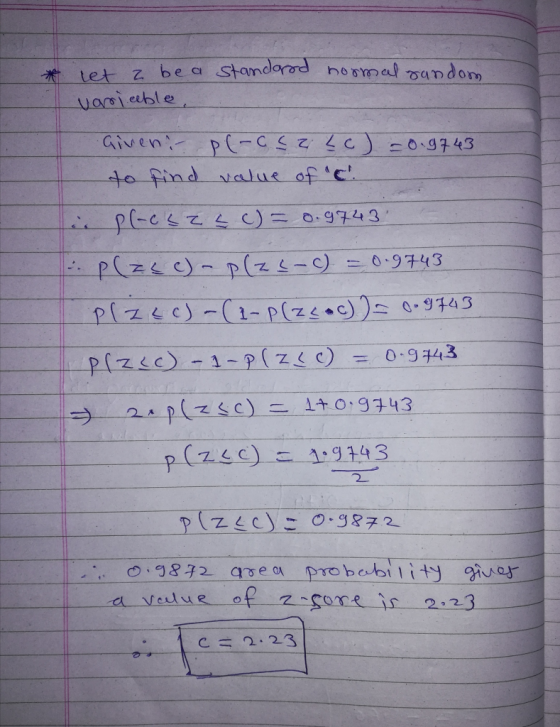 * Let z be a standard normal random
variable,
Given:- p(-c ≤ z ≤ c) = 0.9743
to find value of 'c'.
∴ p(-c ≤ z ≤ c) = 0.9743
∴ p(z ≤ c) - p(z ≤ -c) = 0.9743
p(z ≤ c) - (1 - p(z ≤ c)) = 0.9743
p(z ≤ c) - 1 - p(z ≤ c) = 0.9743
⇒ 2 * p(z ≤ c) = 1 + 0.9743
p(z ≤ c) = 1.9743
2
p(z ≤ c) = 0.9872
∴ 0.9872 area probability gives
a value of z-sore is 2.23
∴ c = 2.23